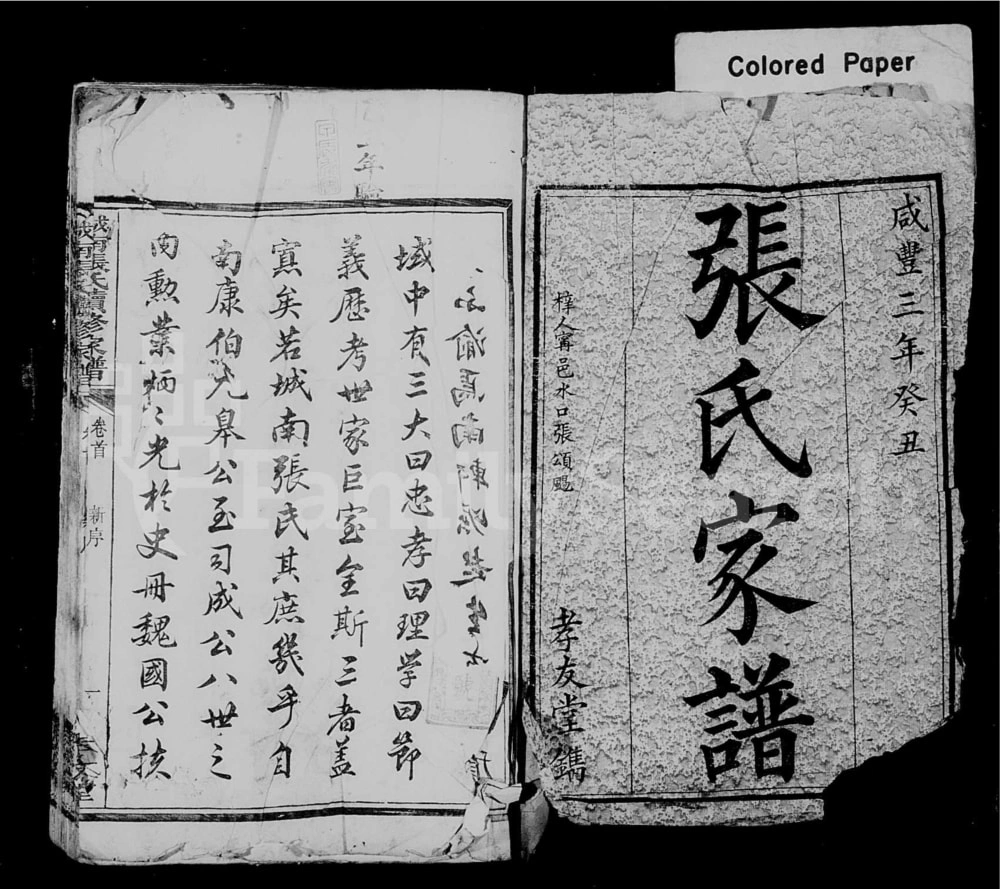 Colored Paper
咸豐三年癸丑
張氏家譜
梓人甯邑水口張頌颺
孝友堂鐫
年
域中有三大曰忠孝曰理学曰節
義歷考世家巨室全斯三者盖
寡矣若城南張氏其庶幾乎自
南康伯九皋公至司成公八世之
内勲業炳〻光於史冊魏國公扶
城南張氏續修家譜
卷首
新序
一
孝友堂
FamilySearch